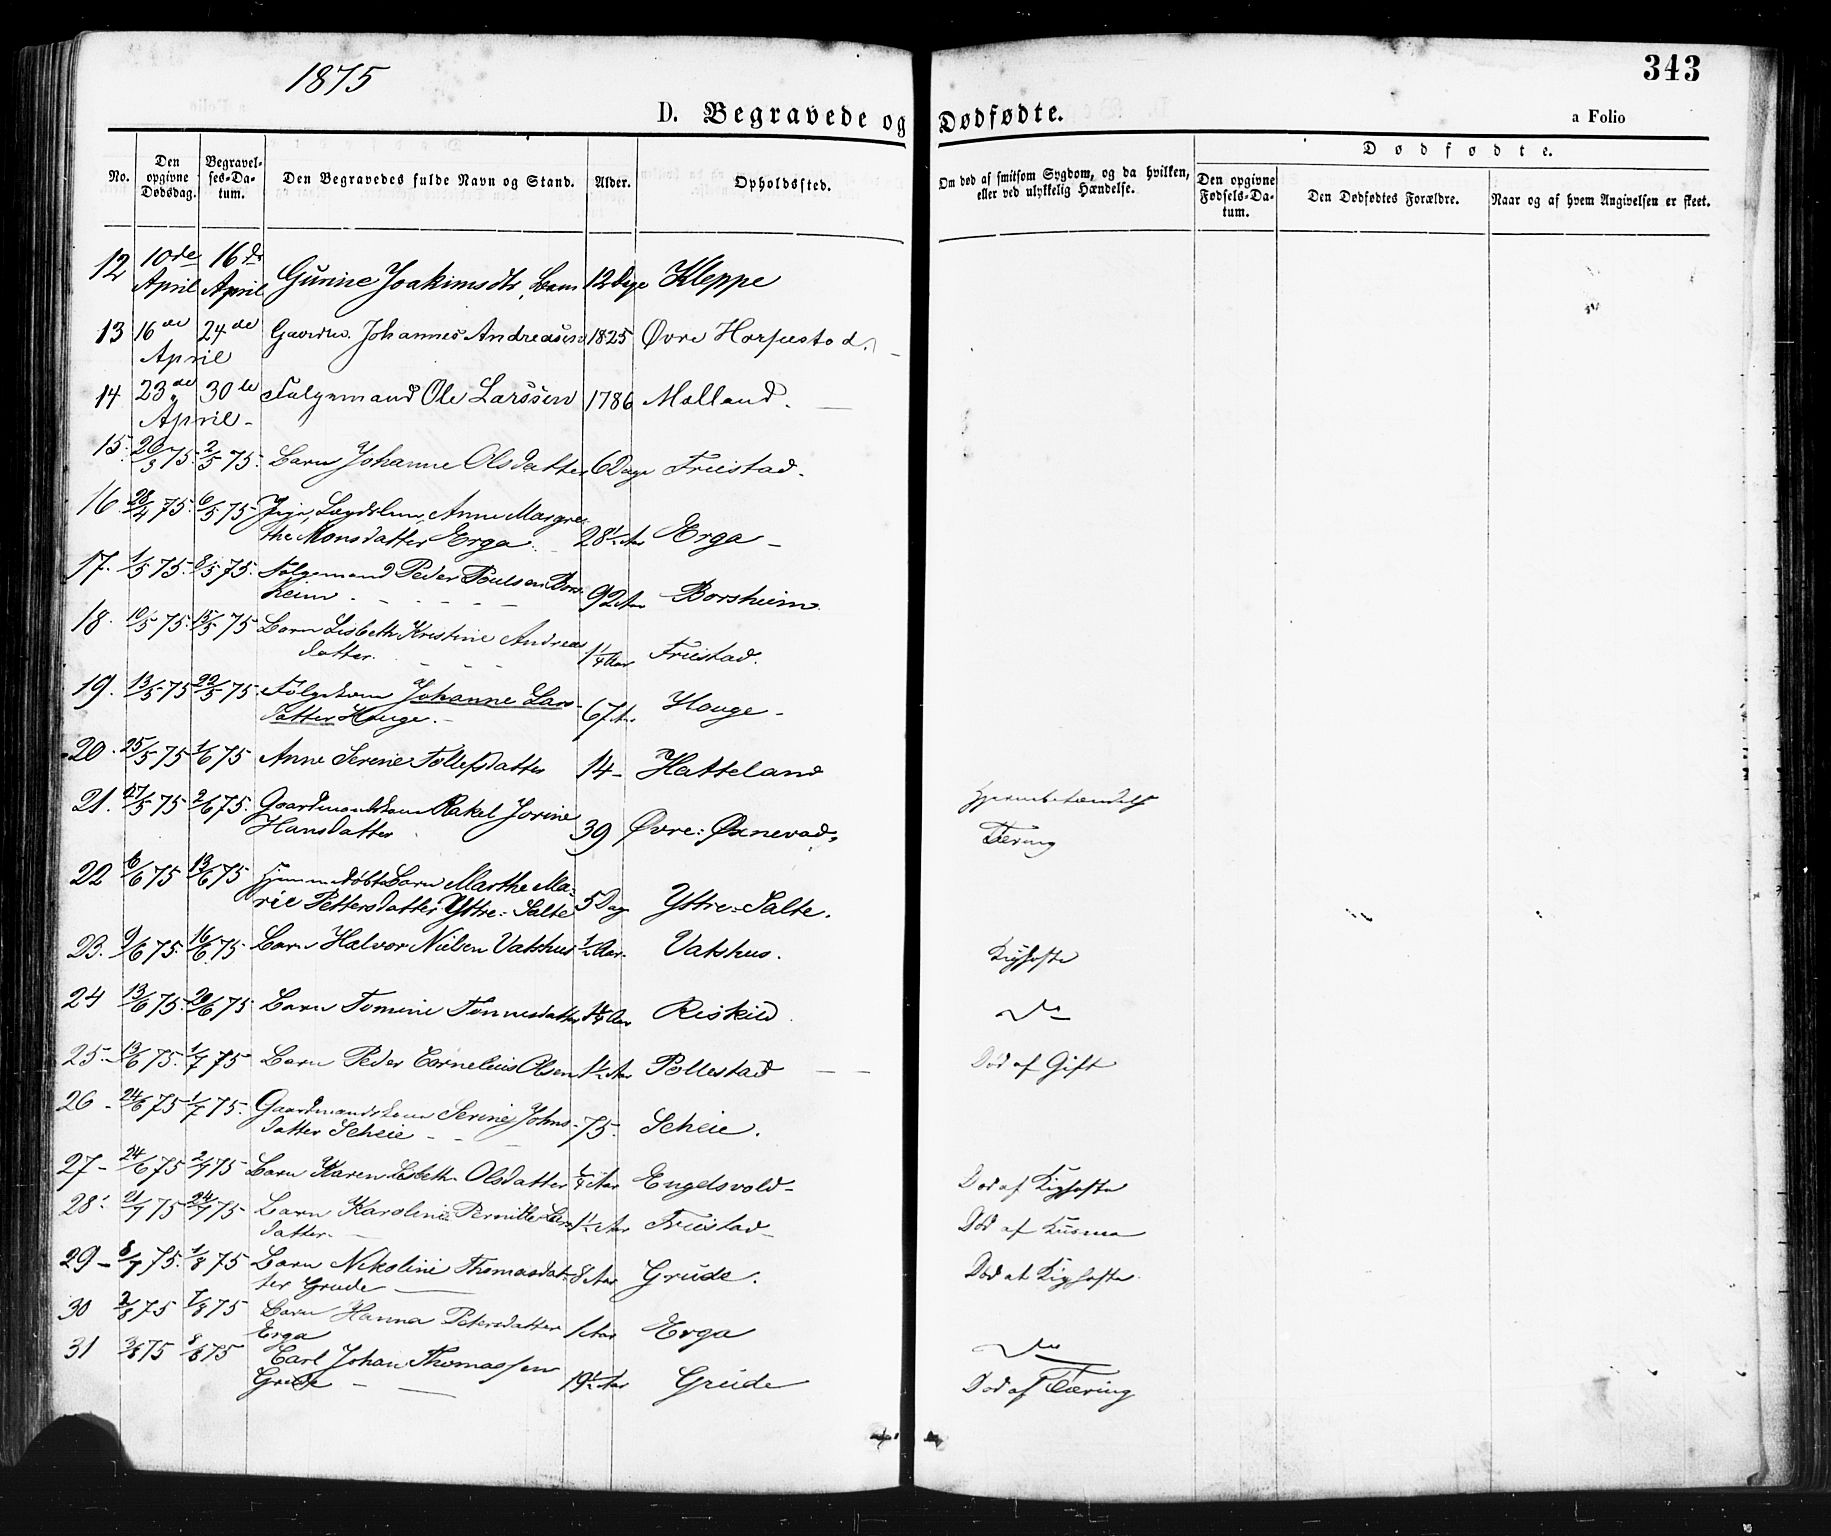 1875
343
D. Begravede og Dødfødte.
a Folio
No.
Den opgivne Dødsdag.
Begravelses-Datum.
Den Begravedes fulde Navn og Stand.
Alder.
Opholdssted.
Om død af smitsom Sygdom, og da hvilken, eller ved ulykkelig Hændelse.
Dødfødte.
Den opgivne Fødsels-Datum.
Den Dødfødtes Forældre.
Naar og af hvem Angivelsen er skeet.
12 10de April 16de April Gunine Joakimsdtr, Barn 12 Dage Kleppe
13 16de April 24de Johannes Andreasen 1825 Øvre Horpestad.
14 23de April 30te Følgemand Ole Larssen 1786 Malland.
15. 26/3 75. 2/5 75. Barn Johanne Olsdatter 6 Dage Friestad.
16 28/4 75. 6/5 75 Pige, Lægdslem, Anne Margre-
the Monsdatter Erga. 28½ Aar Erga
17. 1/5 75. 8/5 75. Følgemand Peder Poulsen Bors-
heim 92 Aar Borsheim.
18. 10/5 75. 15/5 75 Barn Lisbeth Kristine Andreas
datter. 1¼ Aar Friestad.
19. 13/5 75 22/5 75. Følgekone Johanne Lars-
datter Hauge. 67 Aar Hauge
20. 25/5 75 1/6 75 Anne Serine Tollefsdatter 14 Hatteland
21. 27/5 75 2/6 75. Gaardmandskone Rakel Jorine
Hansdatter 39 Øvre: Øxnevad
Hjernebetændelse
Tæring
22 6/6 75 13/6 75 Hjemmedøbt Barn Marthe Ma-
rie Pettersdatter Yttre: Salte 5 Dag Yttre: Salte.
23. 9/6 75. 16/6 75 Barn Halvor Nielsen Vatshus ½ Aar. Vatshus. Kighoste
24 13/6 75. 20/6 75 Barn Tomine Tønnesdatter Aar Riskild Do
25. 13/6 75. 1/7 75 Barn Peder Cornelius Olsen 1½ Aar Pollestad Død af Gift
26 24/6 75 1/7 75. Gaardmandskone Serine Johns-
datter Scheie 75. Scheie.
27 24/6 75 2/7 75 Barn Karen Lisbeth Olsdatter ¼ Aar Engelsvold Død af Kighoste
28. 21/7 75 24/7 75 Barn Karoline Pernille
datter. 1½ Aar Friestad Død af
29 8/7 75. 1/8 75 Barn Nikoline Thomasdat-
ter Grude 8 Aar Grude. Død af Kighoste
30 2/8 75 7/8 75 Barn Hanna Petersdatter
Erga 1 Aar Erga Do
31 3/8 75 8/8 75 Carl Johan Thomassen
Grude 19½ Aar Grude Død af Tæring